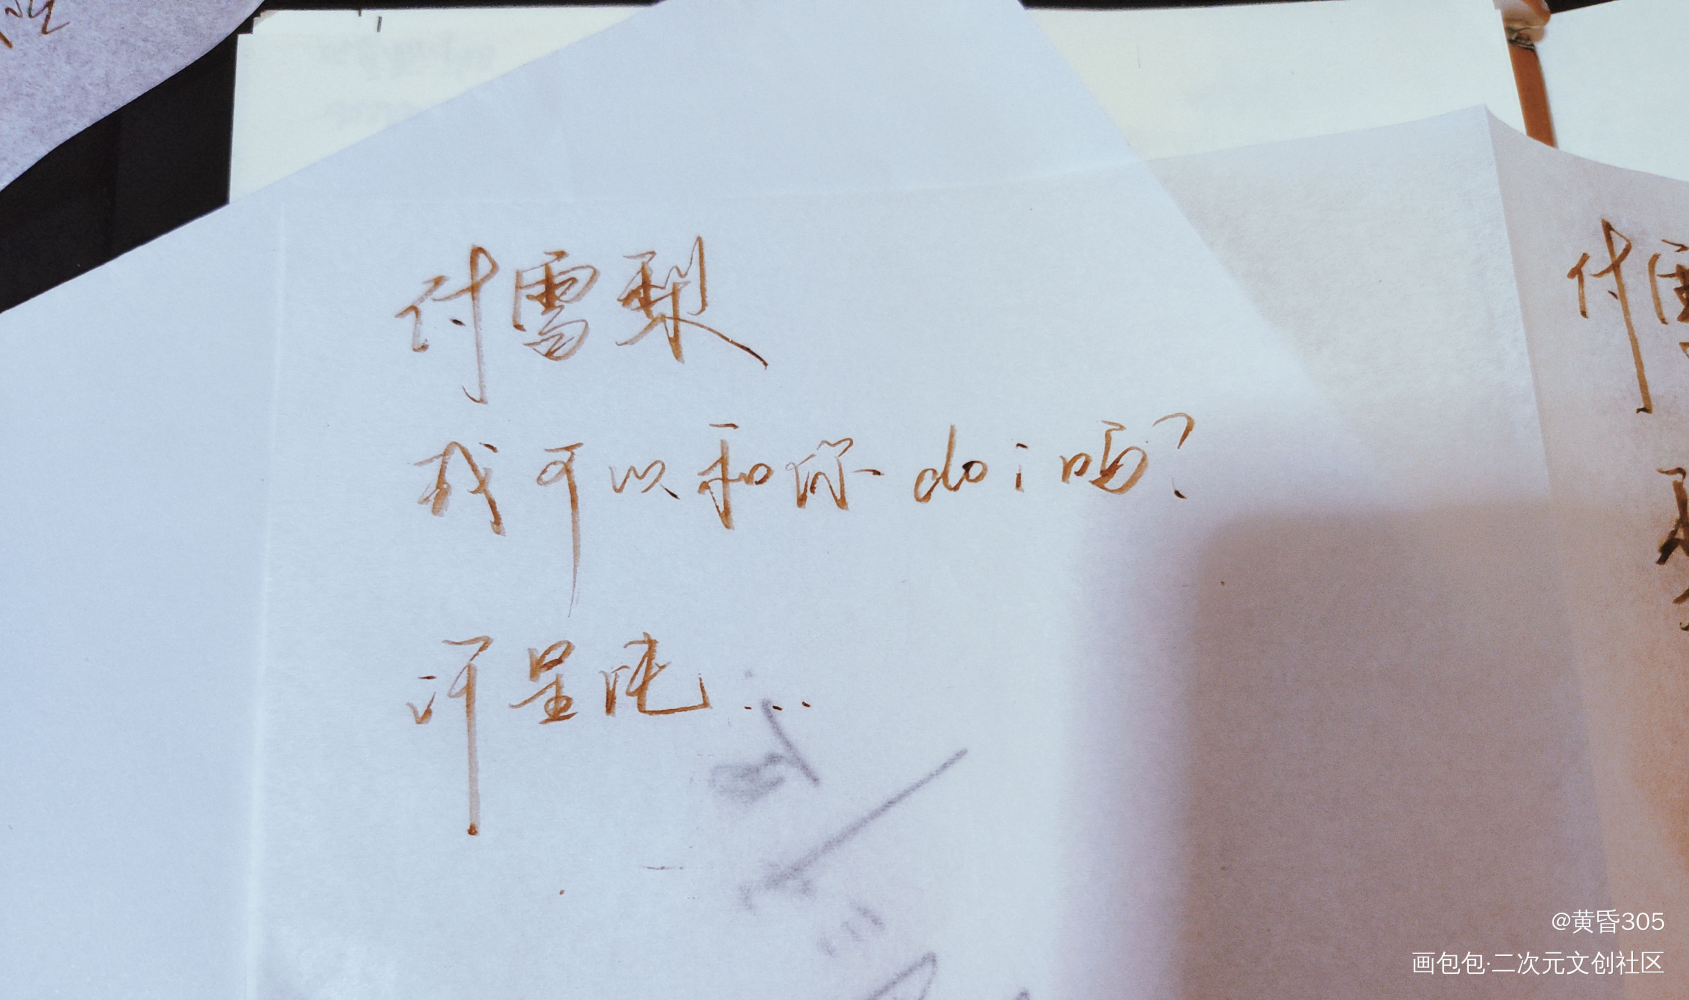 付雪梨
我可以和你doi吗？
许星纯...
付雪
@黄昏305
画包包·二次元文创社区